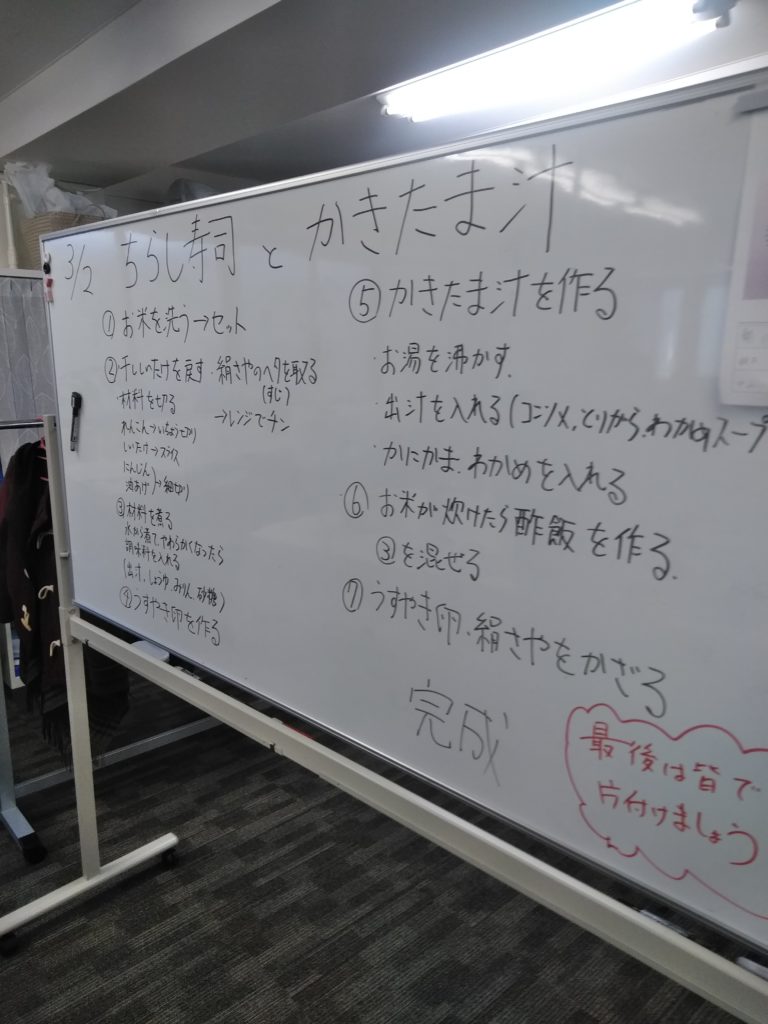 3/2 ちらし寿司 と かきたま汁
① お米を洗う→セット
② 干ししいたけを戻す・絹さやのヘタを取る
(すじ)
材料を切る
→レンジでチン
れんこん→いちょう切り
しいたけ→スライス
にんじん
油あげ →細切り
③ 材料を煮る
水から煮て、やわらかくなったら
調味料を入れる
(出汁、しょうゆ、みりん、砂糖)
④ うすやき卵を作る
⑤ かきたま汁を作る
・お湯を沸かす.
・出汁を入れる(コンソメ、とりから、わかめスープ
・かにかま、わかめを入れる
⑥ お米が炊けたら酢飯を作る.
③を混ぜる
⑦ うすやき卵・絹さやをかざる
完成
最後は皆で
片付けましょう